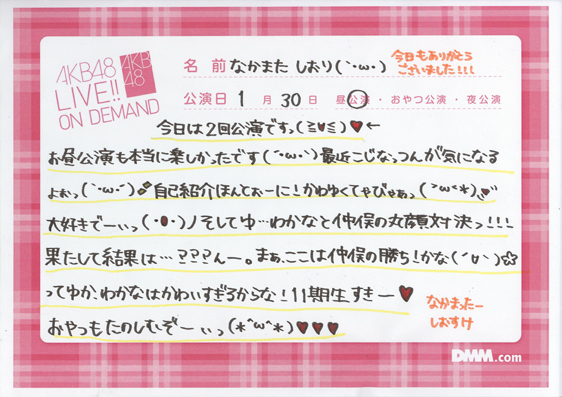 AKB48
LIVE!!
ON DEMAND
AKB
48
名 前 なかまた しおり(｀・ω・)
今日もありがとう
ございました!!!
公演日 1 月 30 日 昼公演・おやつ公演・夜公演
今日は2回公演ですっ(ミ∪ミ)♥←
お昼公演も本当に楽しかったです(｀・ω・´)最近こじなっつんが気になる
よぉっ(｀・ω・´)自己紹介ほんとぉーに!かわゆくてやびゃあっ(｀ω´*)
大好きでーぃっ(・θ・)ノそしてゆ…わかなと仲俣の丸顔対決っ!!!
果たして結果は…???んー。まぁ、ここは仲俣の勝ち!かな(´∪｀)☆
ってゆか、わかなはかわいすぎるからな!11期生すきー♥
おやつもたのしむぞーぃっ(*^ω^*)♥♥♥
なかまったー
しおすけ
DMM.com